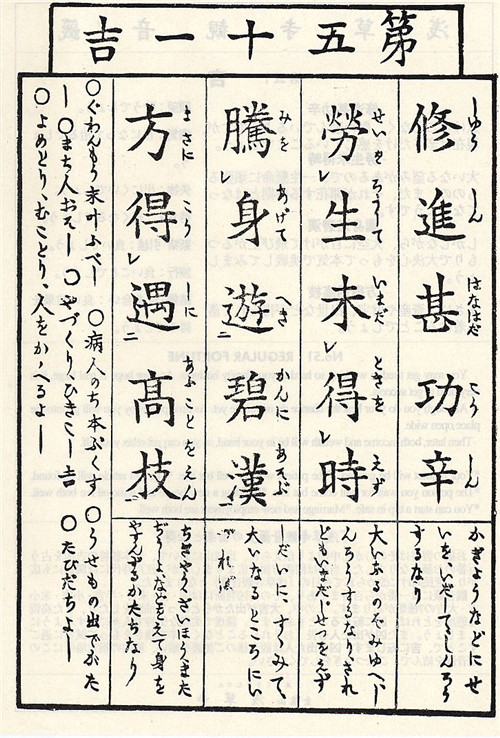 第五十一吉
修進甚功辛
しゆうしんはなはだこうしん
かぎようなどにせ
いをいだししんろう
するなり
勞生未得時
せいをらうしていまだときをえず
大いなるのぞみゆへし
んろうすれ
どもいまだじせつをえず
騰身遊碧漢
みをあげてへきかんにあそぶ
しだいにすゝみて、
大いなるところにい
づれば
方得遇高枝
まさにこうしにあふことをえん
ちぎやうざいほうまた
をえて身を
やすんずるかたちなり
〇ぐわんもう末叶ふべし 〇病人のち本ぷくす 〇うせもの出でがた
し 〇まち人おそし 〇やづくりひきこし 〇たびだちよし
〇よめとり、むことり、人をかゝへるよし